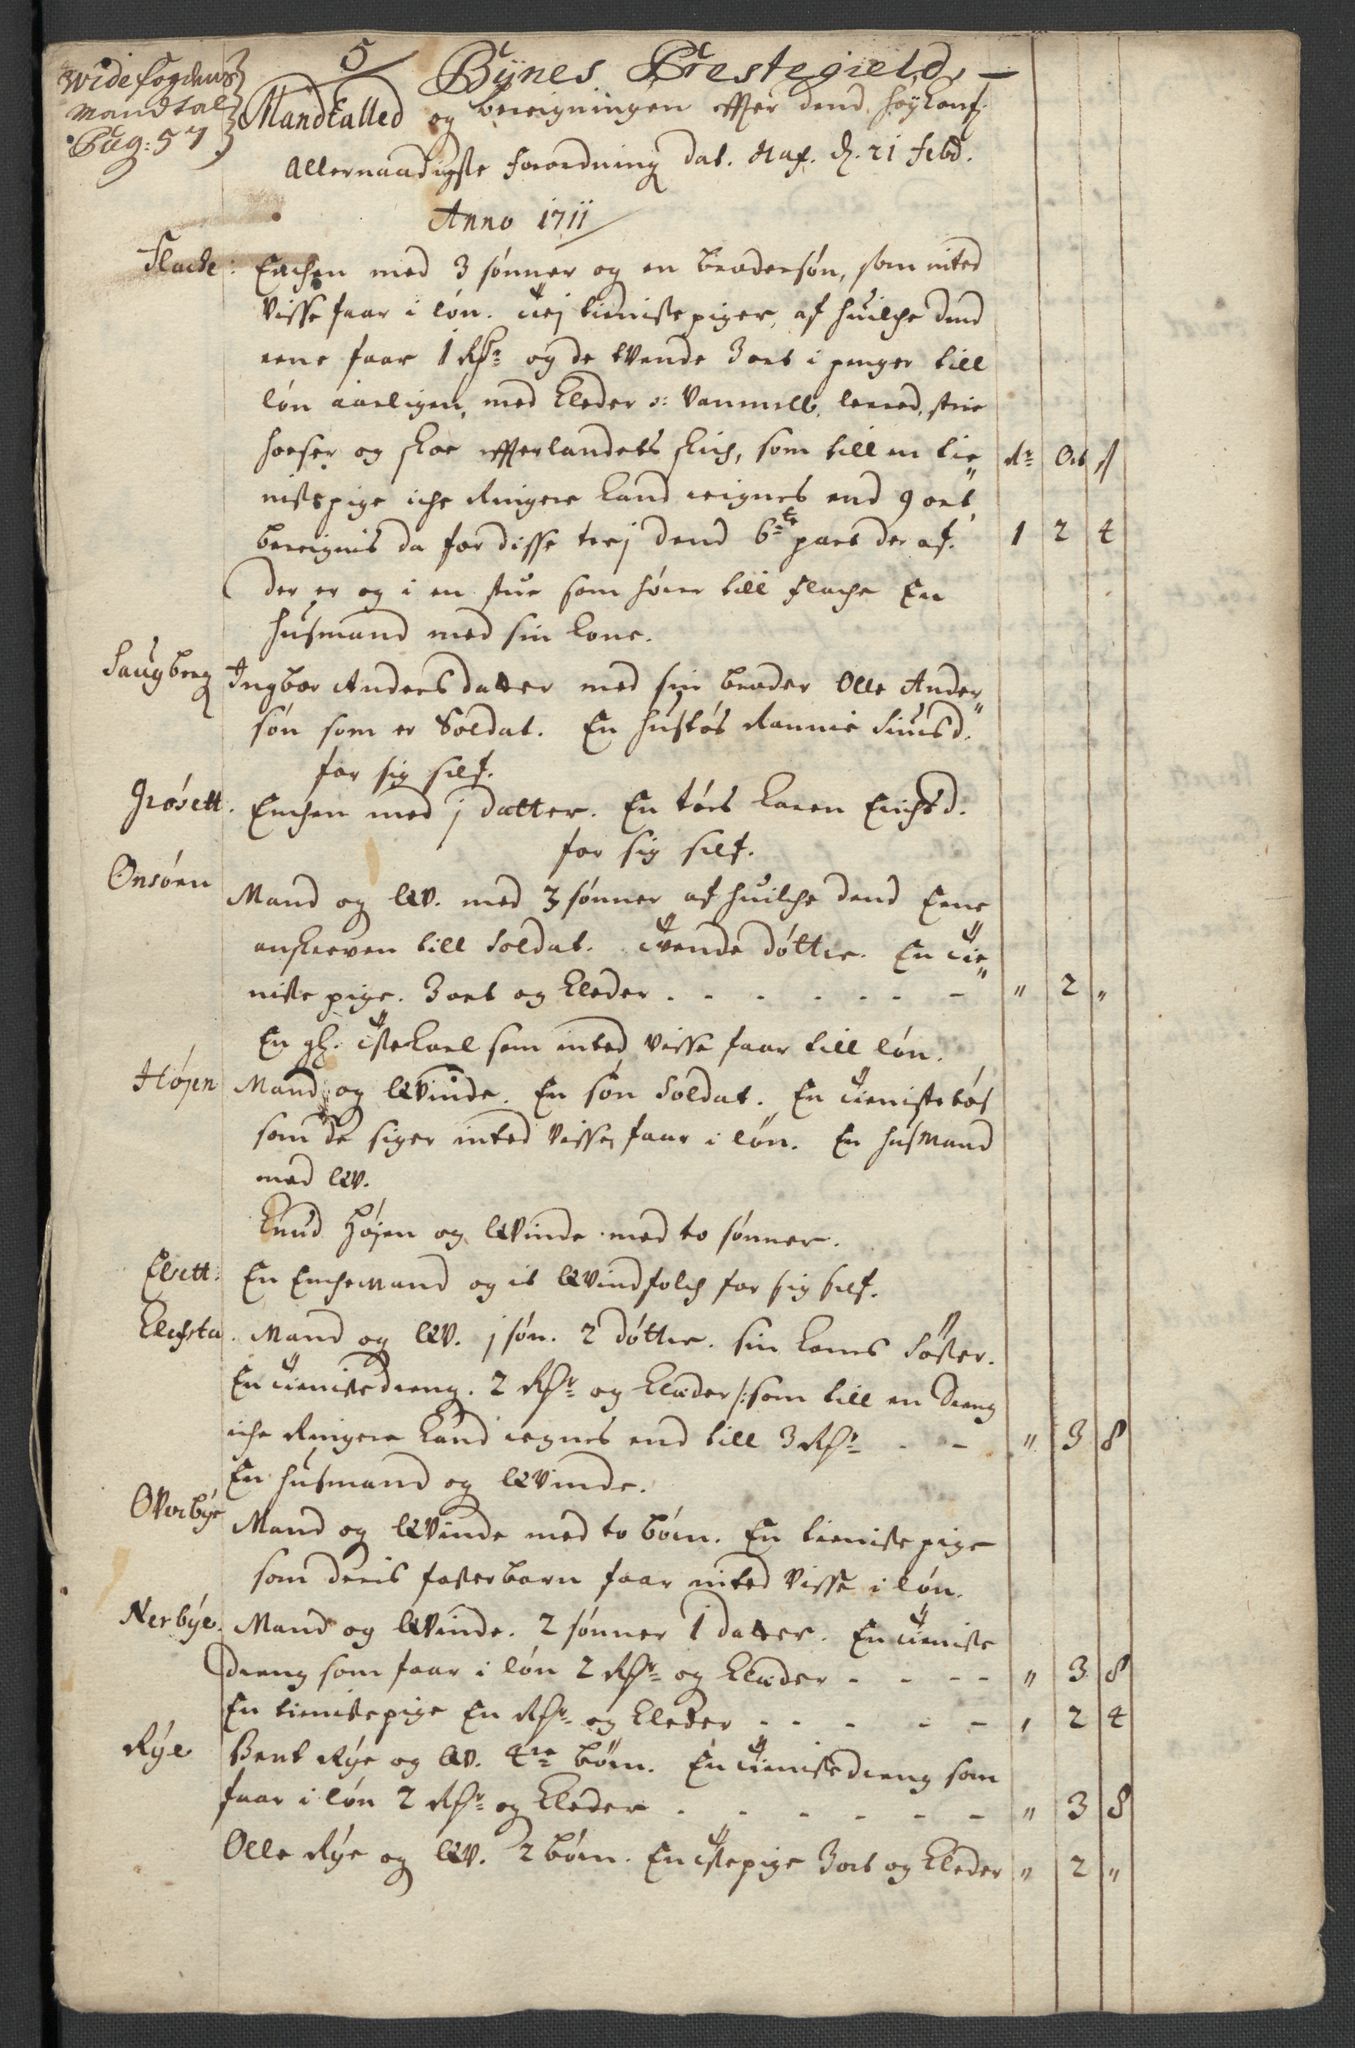 5/ Bÿnes Prestegield
Wide fogdens
Mandtal
Pag: 57
Mandtalled og bereigningen effter dend høÿkongl.
Allernaadigste forordning dat. Haf. d. 21 Febr.
Anno 1711
Flache: Enchen med 3 sønner og en brodersøn, som inted
visse faar i løn. trej tienistepiger, af huilche dend
eene faar 1 Rdr og de tvende 3 ort i penger till
løn aarligen, med Kleder o: Vanmell, lerred, strie
hoeser og skoe effter landets skich, som till en tie Rr Ort s
nistepige iche Ringere kand reignes end 9 ort,
bereignis da for disse trej dend 6te part der af. 1 2 4
der er og i en stue som hører till Flache En
husmand med sin kone.
Saugberg Ingbor Andersdatter med sin broder Olle Ander
søn som er Soldat. En hustøs Rannie Siursd.
for sig self.
Grøsett. Enchen med j datter. En tøes Karen Erichsd.
for sig self.
Onsøen Mand og kv. med 3 sønner af huilche dend Eene
anskreven till Soldat. Tvende døttre. En tie
niste pige. 3 ort og Kleder . - - - - - - " 2 "
En gl. tiste Karl som inted visse faar till løn.
Højen Mand og kvinde. En søn Soldat. En tieniste tøs
som de siger inted visse faar i løn. En husmand
med kv.
Knud Højen og kvinde med to sønner.
Elsett: En Enchemand og it kvindfolch for sig self.
Klefsta. Mand og kv. j søn. 2 døttre. sin kones Søster.
En tienistedreng. 2 Rdr og Klæder /: som till en Dreng
iche Ringere kand regnes end till 3 Rdr - - " 3 8
En husmand og kvinde.
Overbÿe Mand og kvinde med to børn. En tieniste pige
som deris fosterbarn faar inted visse i løn.
Nerbÿe. Mand og kvinde. 2 sønner 1 datter. En tieniste
dreng som faar i løn 2 Rdr og Klæder - - - - " 3 8
En tienistepige En Rdr og Kleder - - - - - " 2 4
Rÿe Bent Rÿe og kv. 4re børn. En tienistedreng som
faar i løn 2 Rdr og Kleder . - - - - - - " 3 8
Olle Rÿe og kv. 2 børn. En tistepige 3 ort og Kleder " 2 "